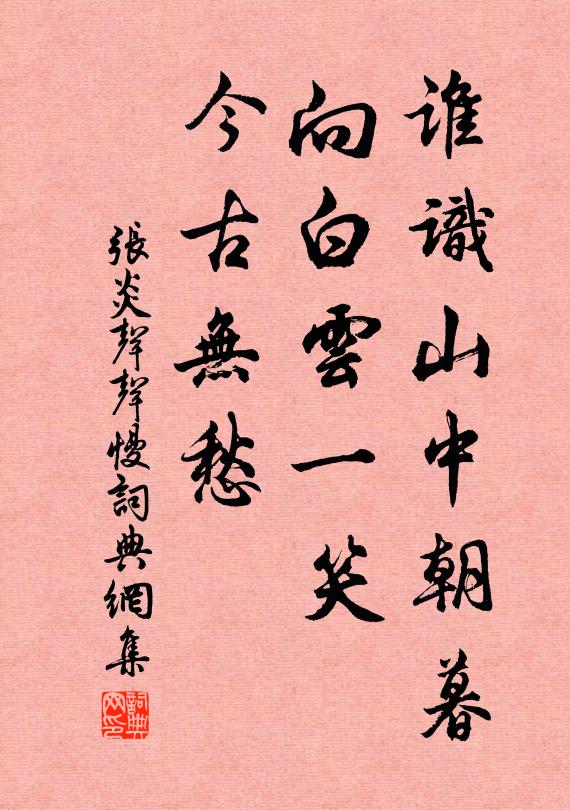 誰識山中朝暮
向白雲一笑
今古無愁
張炎聲聲慢詞典網集
詞典
网印